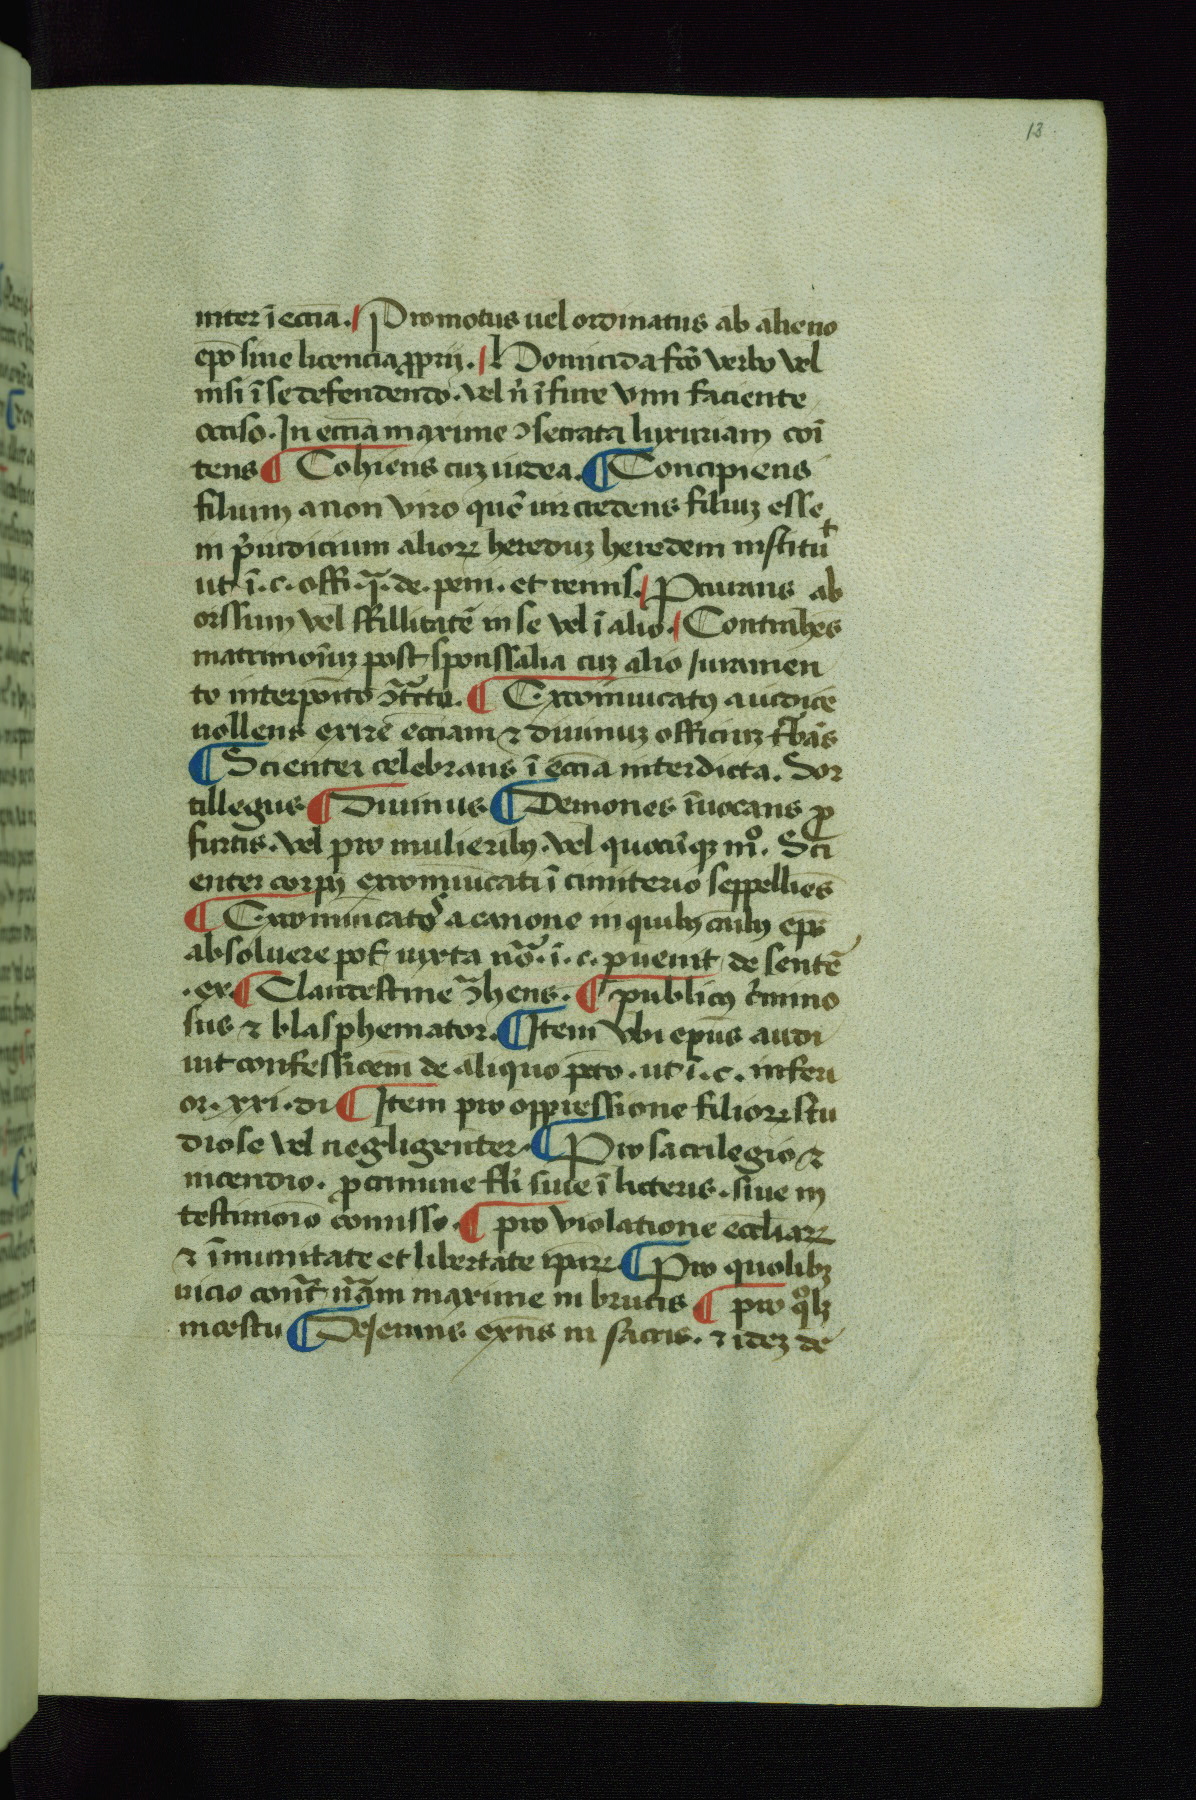 13
inter ī ecc̄ia. Promotus uel ordinatus ab alieno
ep̄o siue licencia ꝓprij. Homicida fc̄o verbo vel
nisi ī se defendendo. vel n̄ ī fure vim faciente
occiso. In ecc̄ia maxime ↄsecrata luxuriam com̄
tens ¶ Cohiens cuꝫ iudea. ¶ Concipiens
filium a non viro quē uir credens filiuꝫ esse
in p̄iudicium alioꝝ hereduꝫ heredem institu
ut ī. c. offi. q̄. de. peni. et remis. Pcurans ab
orssum vel sterillitatē in se vel ī alio. Contrahēs
matrimoīuꝫ post sponssalia cuꝫ alio iuramen
to interpoīto ↄ̄tr̄ctu. ¶ Excōmuīcatꝰ a iudice
nollens exire ecc̄iam ⁊ diuinuꝫ officiuꝫ t̄bās
¶ Scienter celebrans ī ecc̄ia interdicta. Sor
tillegus ¶ Diuinus ¶ Demones īuocans ꝓ
furtis. vel pro mulieribꝰ. vel quocūqꝫ mᵒ. Sci
enter corpꝰ excōmuīcati ī cimiterio seppelliēs
¶ Excōmuīcatoꝝ a canone in quibꝰ cāibꝰ ep̄s
absoluere pot̄ iuxta nōā. ī. c. puenit de sentē
.ex. ¶ Clandestine ↄ̄hens. ¶ publicꝰ c̄imino
sus ⁊ blasphemator. ¶ Item vbi ep̄us audi
uit confessionem de aliquo pc̄cto. ut ī. c. inferi
or. xxi. di ¶ Item pro oppressione filioꝝ stu
diose vel negligenter. ¶ Pro sacrilegio ⁊
incendio. ꝓ crimine fl̄i siue ī licteris. siue in
testimoīo comisso. ¶ pro violatione eccl̄iaꝝ
⁊ īmunitate et libertate ip̄aꝝ. ¶ Pro quolibꝫ
uicio cont̄ n̄am maxime in brutis ¶ pro qᵒlꝫ
incestu ¶ Dejeruns ex̄ns in sacris. ⁊ ideꝫ de